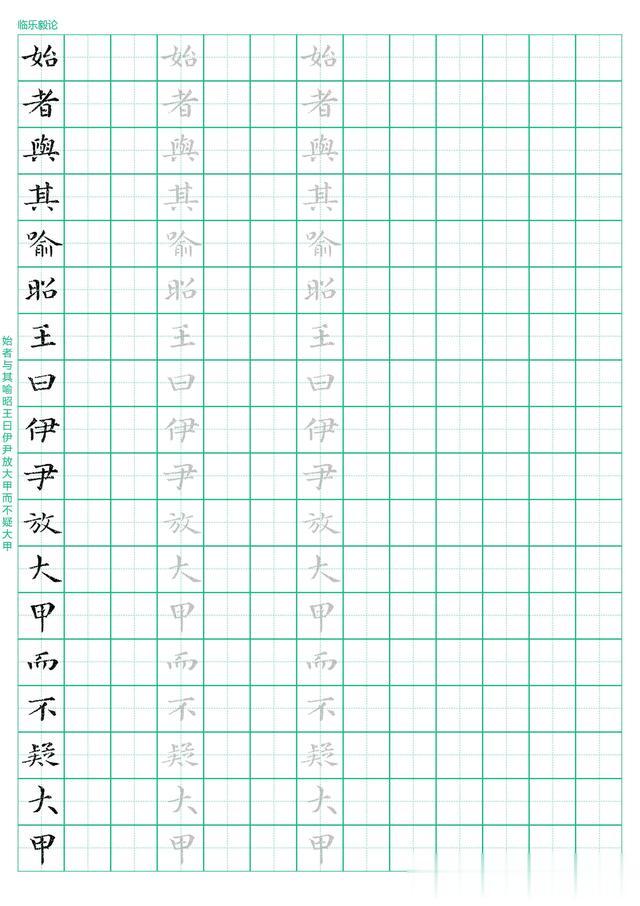 临乐毅论
始者与其喻昭王曰伊尹放大甲而不疑大甲
始者與其喻昭王曰伊尹放大甲而不疑大甲
始者與其喻昭王曰伊尹放大甲而不疑大甲
始者與其喻昭王曰伊尹放大甲而不疑大甲